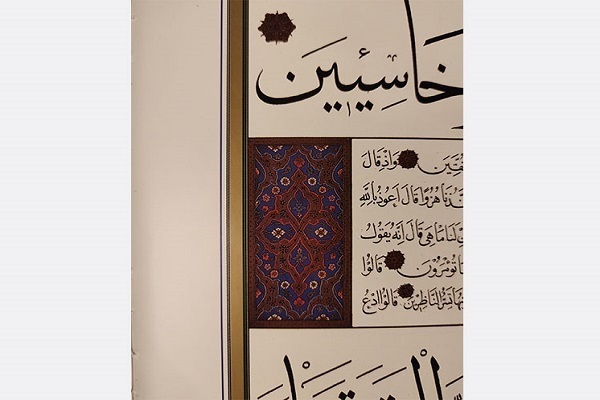 خَاسِئِينَ
وَاِذْ قَالَ
هُزُوًا قَالَ اَعُوذُ بِاللّٰهِ
لَنَا مَا هِىَ قَالَ اِنَّهُ يَقُولُ
تُؤْمَرُونَ قَالُوا
تَسُرُّ النَّاظِرِينَ قَالُوا ادْعُ